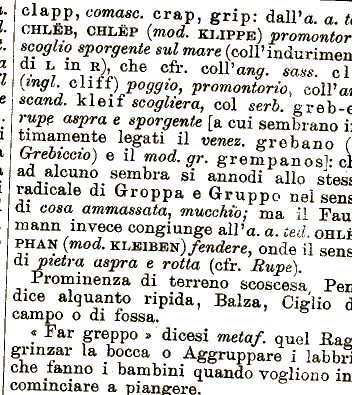 clapp, comasc. crap, grip: dall'a. a.
CHLËB, CHLËP (mod. KLIPPE) promontor
scoglio sporgente sul mare (coll'indurimen
di L in R), che cfr. coll'ang. sass. cl
(ingl. cliff) poggio, promontorio, coll'a
scand. kleif scogliera, col serb. greb-e
rupe aspra e sporgente [a cui sembrano i
timamente legati il venez. grebano (
Grebiccio) e il mod. gr. grempanos]: ch
ad alcuno sembra si annodi allo stess
radicale di Groppa e Gruppo nel sens
di cosa ammassata, mucchio; ma il Fau
mann invece congiunge all'a. a. ted. OHLË
PHAN (mod. KLEIBEN) fendere, onde il sens
di pietra aspra e rotta (cfr. Rupe).
Prominenza di terreno scoscesa, Pen
dice alquanto ripida, Balza, Ciglio d
campo o di fossa.
« Far greppo » dicesi metaf. quel Rag
grinzar la bocca o Aggruppare i labbri
che fanno i bambini quando vogliono in
cominciare a piangere.